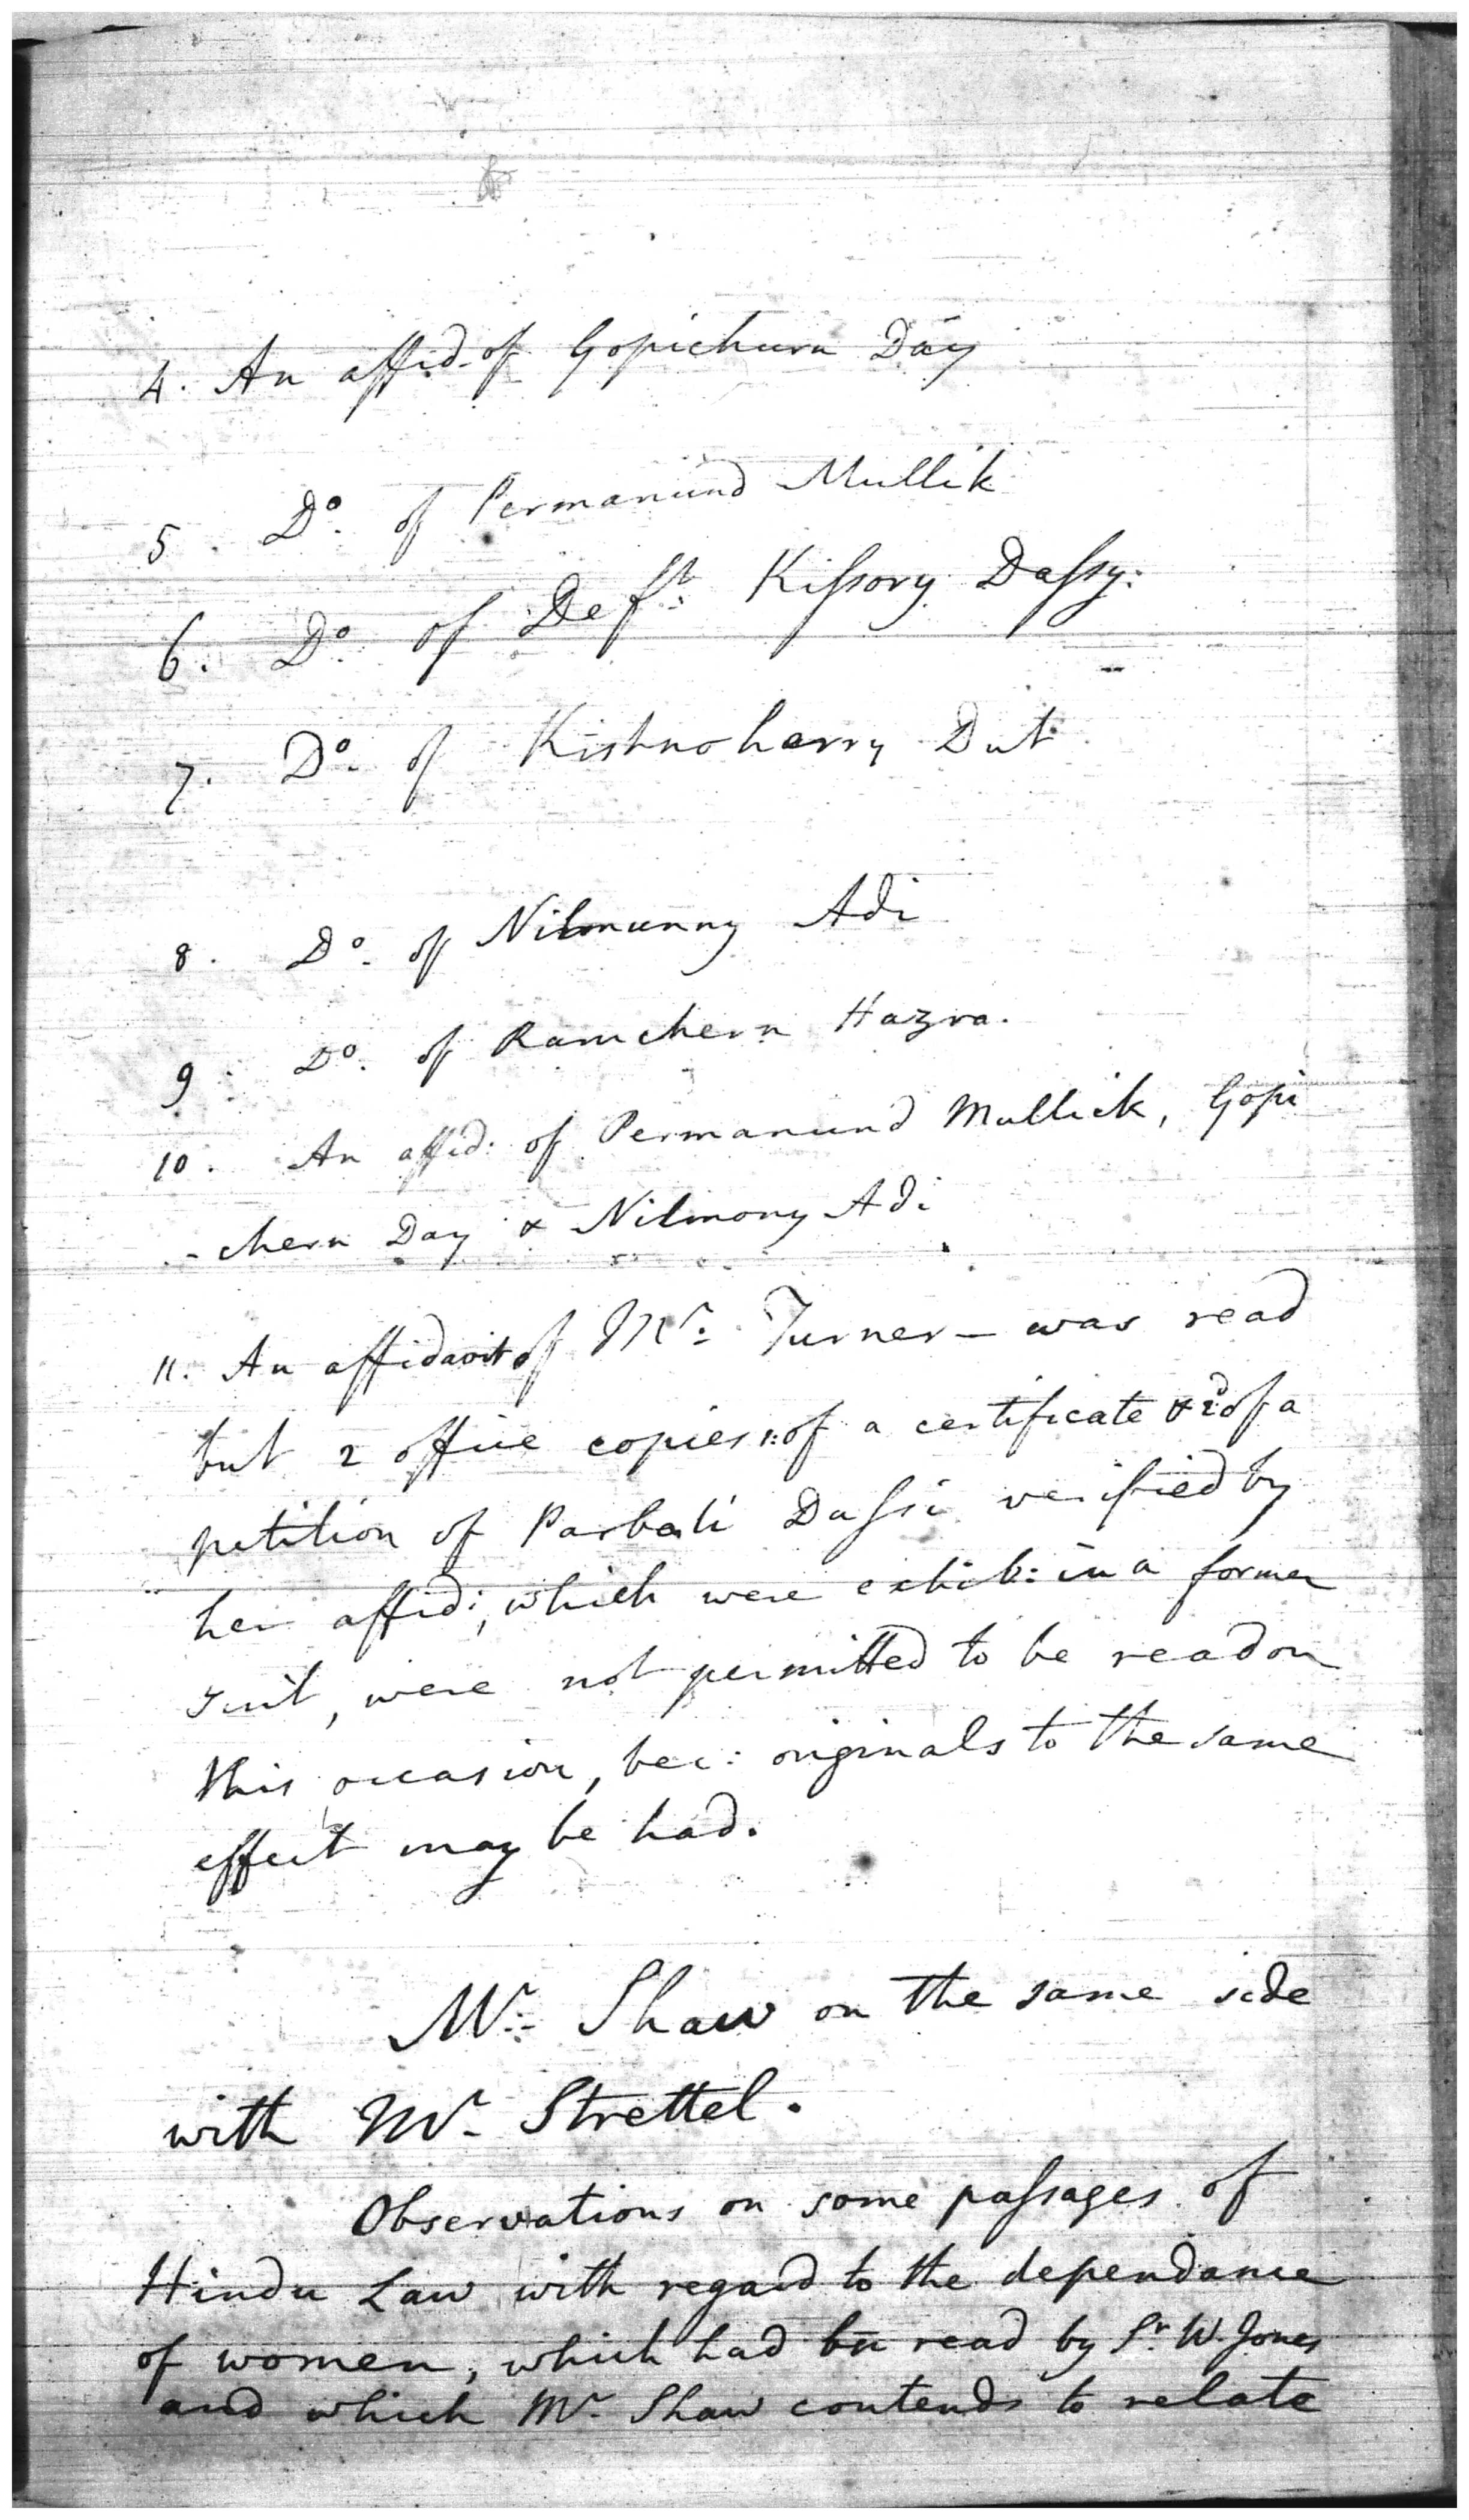 4. An affid. of Gopichurn Day
5. Do. of Permanund Mullik
6. Do. of Deft. Kissory Dassy.
7. Do. of Kishnoherry Dut
8. Do. of Nilmunny Adi
9. Do. of Ramchern Hazra.
10. An affid: of Permanund Mullick, Gopi
-chern Day & Nilmony Adi
11. An affidavit of Mr. Turner - was read
but 2 office copies 1: of a certificate & 2d of a
petition of Parbati Dassi verified by
her affid:, which were exhib: in a former
suit, were not permitted to be read on
this occasion, bec: originals to the same
effect may be had.
Mr. Shaw on the same side
with Mr. Strettel.
Observations on some passages of
Hindu Law with regard to the dependance
of women, which had bn read by Sr. W. Jones
and which Mr. Shaw contends to relate